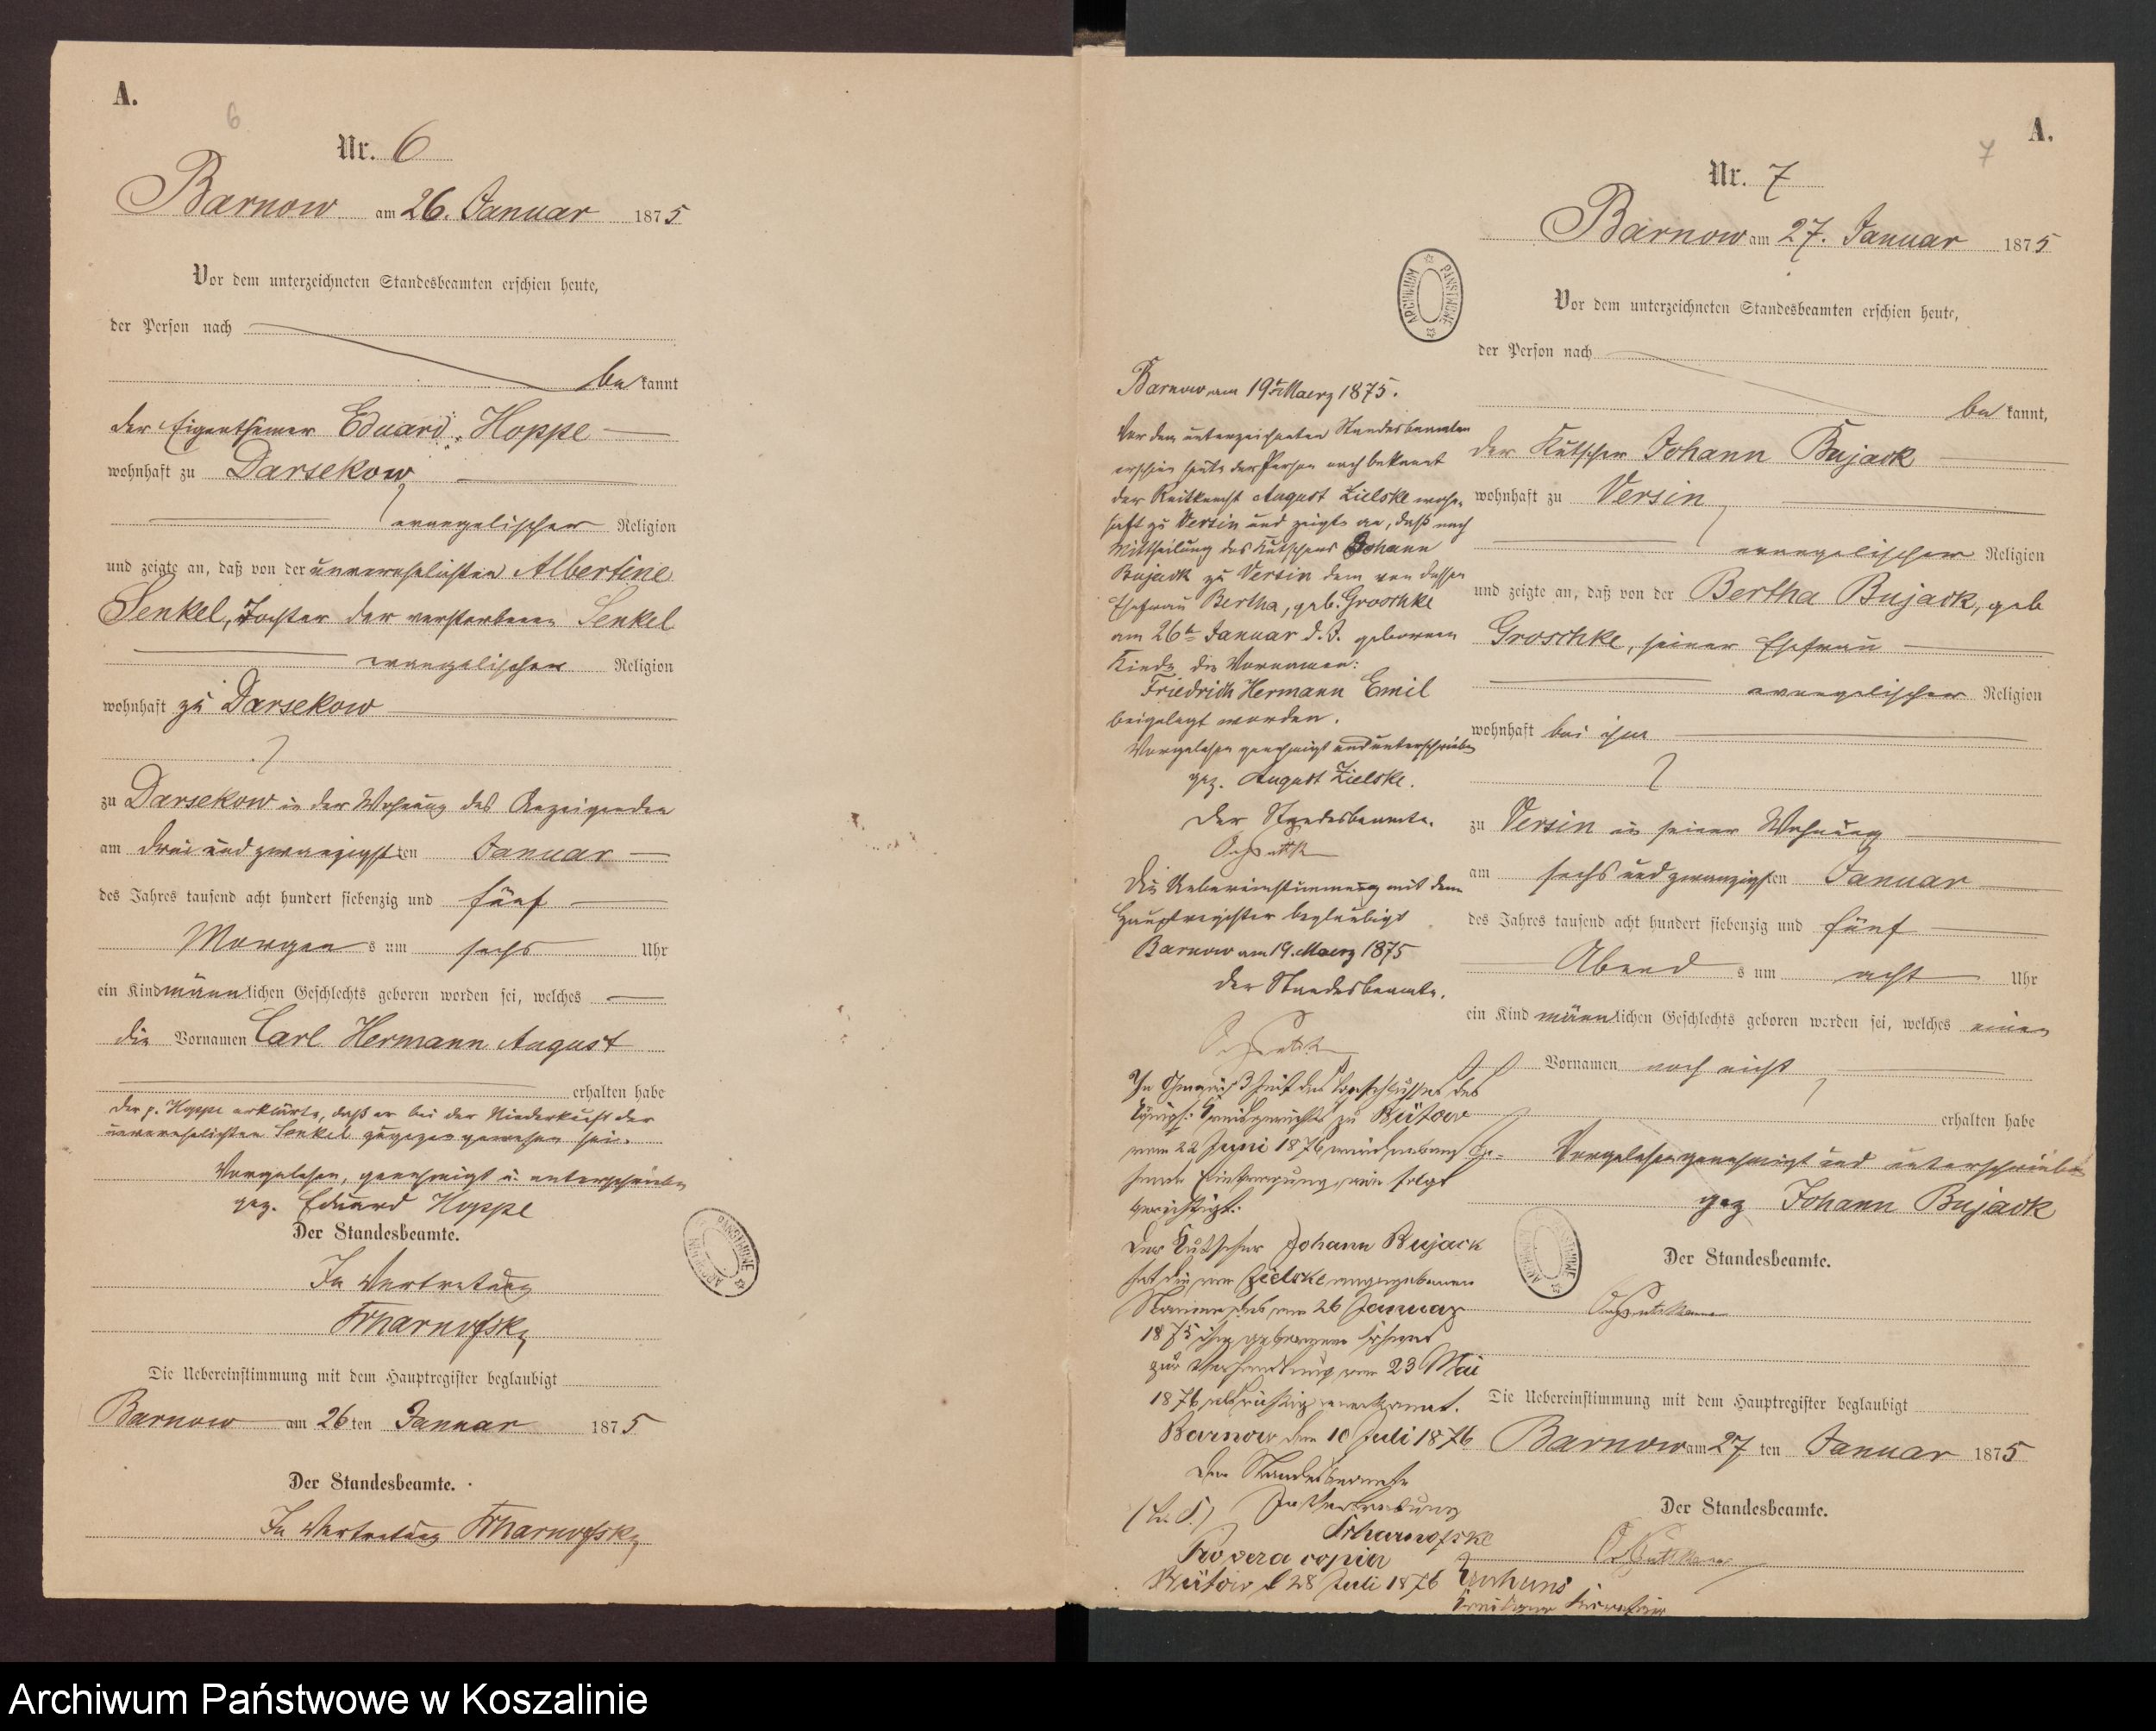 A.
6
Nr. 6
Barnow am 26. Januar 1875
Vor dem unterzeichneten Standesbeamten erschien heute,
der Person nach
bekannt
der Eigenthümer Eduard Hoppe
wohnhaft zu Darsekow
evangelischer Religion
und zeigte an, daß von der unverehelichten Albertine
Senkel, Tochter der verstorbenen Senkel
evangelischer Religion
wohnhaft zu Darsekow
zu Darsekow in der Wohnung des Anzeigenden
am drei und zwanzigsten Januar
des Jahres tausend acht hundert siebenzig und fünf
Morgens um sechs Uhr
ein Kind männlichen Geschlechts geboren worden sei, welches
die Vornamen Carl Hermann August
erhalten habe
Der p. Hoppe erklärte, daß er bei der Niederkunft der
unverehelichten Senkel zugegen gewesen sei.
Vorgelesen, genehmigt u. unterschrieben
gez. Eduard Hoppe
Der Standesbeamte.
In Vertretung
Die Uebereinstimmung mit dem Hauptregister beglaubigt
Barnow am 26ten Januar 1875
Der Standesbeamte.
In Vertretung
ARCHIWUM PAŃSTWOWE
A.
7
Nr. 7
Barnow am 27. Januar 1875
Vor dem unterzeichneten Standesbeamten erschien heute,
der Person nach
bekannt,
der Kutscher Johann Bujack
wohnhaft zu Versin
evangelischer Religion
und zeigte an, daß von der Bertha Bujack, geb
Groschke, seiner Ehefrau
evangelischer Religion
wohnhaft bei ihm
zu Versin in seiner Wohnung
am sechs und zwanzigsten Januar
des Jahres tausend acht hundert siebenzig und fünf
Abends um acht Uhr
ein Kind männlichen Geschlechts geboren worden sei, welches einen
Vornamen noch nicht
erhalten habe
Vorgelesen genehmigt und unterschrieben
gez Johann Bujack
Der Standesbeamte.
Die Uebereinstimmung mit dem Hauptregister beglaubigt
Barnow am 27 ten Januar 1875
Der Standesbeamte.
ARCHIWUM PAŃSTWOWE
Barnow am 19t Maerz 1875.
Vor dem unterzeichneten Standesbeamten
erschien heute der Person nach bekannt
der Reitknecht August Zielske wohn-
haft zu Versin und zeigte an, daß nach
Mittheilung des Kutschers Johann
Bujack zu Versin dem von dessen
Ehefrau Bertha, geb. Groschke
am 26t Januar d. J. geborenen
Kinde die Vornamen:
Friedrich Hermann Emil
beigelegt worden.
Vorgelesen genehmigt und unterschrieben
gez. August Zielske.
Der Standesbeamte.
Die Uebereinstimmung mit dem
Hauptregister beglaubigt
Barnow am 19. Maerz 1875
Der Standesbeamte.
In Gemäßheit des Beschlusses des
Königl. Kreisgerichts zu Bütow
vom 22 Juni 1876 wird
Eintragung wie folgt
berichtigt:
Der Kutscher Johann Bujack
hat die von Zielske angegebenen
Namen des am 26 Januar
1875 ihm geborenen Sohnes
zur Verhandlung vom 23 Mai
1876 als richtig anerkannt.
Barnow den 10 Juli 1876
Der Standesbeamte
(L. S.) In Vertretung
Pro vera copia
Bütow d 28 Juli 1876
ARCHIWUM PAŃSTWOWE
Archiwum Państwowe w Koszalinie